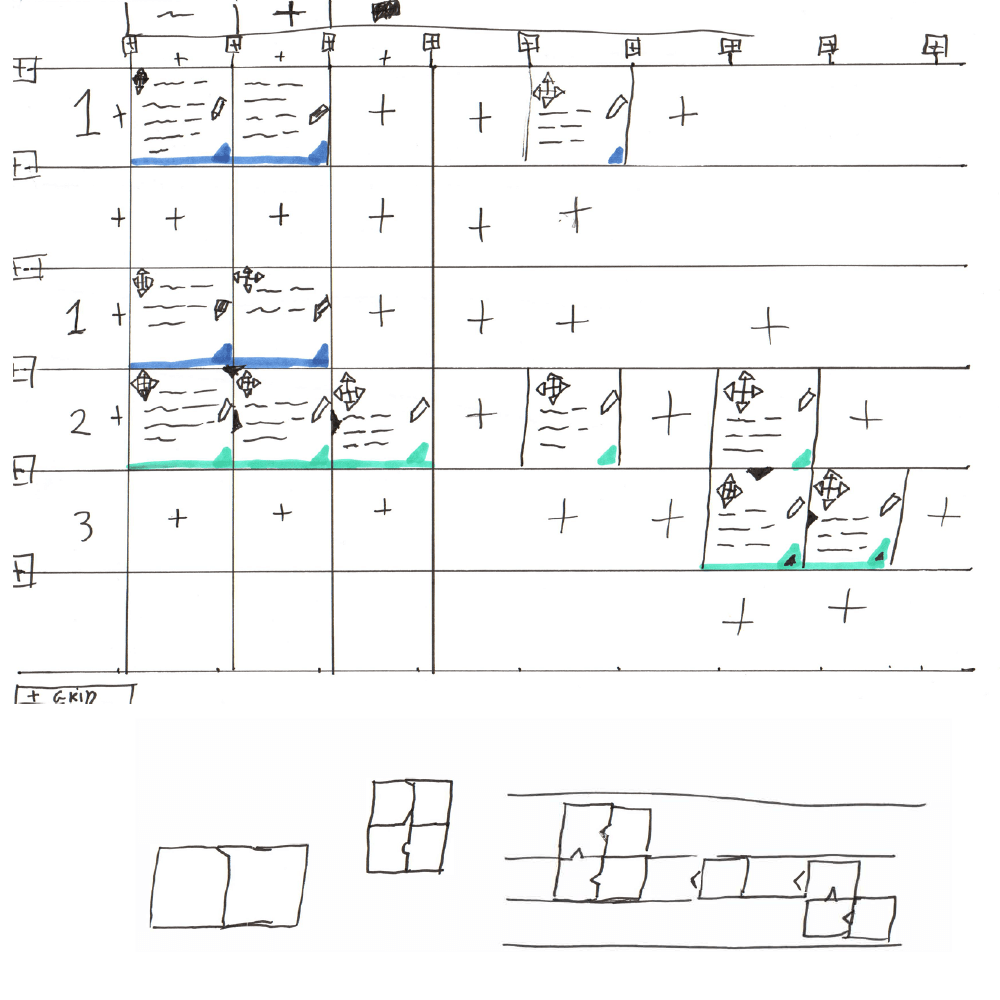 1
1
2
3
+ GRID